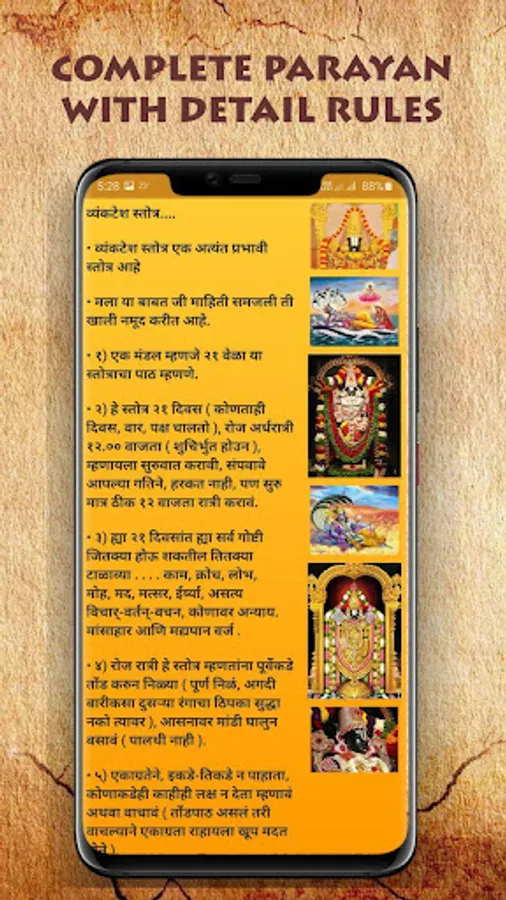 COMPLETE PARAYAN
WITH DETAIL RULES
5:28
88%
व्यंकटेश स्तोत्र....
• व्यंकटेश स्तोत्र एक अत्यंत प्रभावी
स्तोत्र आहे
• मला या बाबत जी माहिती समजली ती
खाली नमूद करीत आहे.
• १) एक मंडल म्हणजे २१ वेळा या
स्तोत्राचा पाठ म्हणणे.
• २) हे स्तोत्र २१ दिवस ( कोणताही
दिवस, वार, पक्ष चालतो ), रोज अर्धरात्री
१२.०० वाजता ( शुचिर्भुत होउन ),
म्हणायला सुरुवात करावी, संपवावे
आपल्या गतिने, हरकत नाही, पण सुरु
मात्र ठीक १२ वाजता रात्री करावं.
• ३) ह्या २१ दिवसांत ह्या सर्व गोष्टी
जितक्या होऊ शकतील तितक्या
टाळाव्या . . . . काम, क्रोध, लोभ,
मोह, मद, मत्सर, ईर्ष्या, असत्य
विचार्-वर्तन्-वचन, कोणावर अन्याय.
मांसाहार आणि मद्यपान वर्ज .
• ४) रोज रात्री हे स्तोत्र म्हणतांना पूर्वेकडे
तोंड करुन निळ्या ( पूर्ण निळं, अगदी
बारीकसा दुसऱ्या रंगाचा ठिपका सुद्धा
नको त्यावर ), आसनावर मांडी घालुन
बसावं ( पालथी नाही ).
• ५) एकाग्रतेने, इकडे-तिकडे न पाहाता,
कोणाकडेही काहीही लक्ष न देता म्हणावं
अथवा वाचावं ( तोंडपाठ असलं तरी
वाचल्याने एकाग्रता राहायला खूप मदत